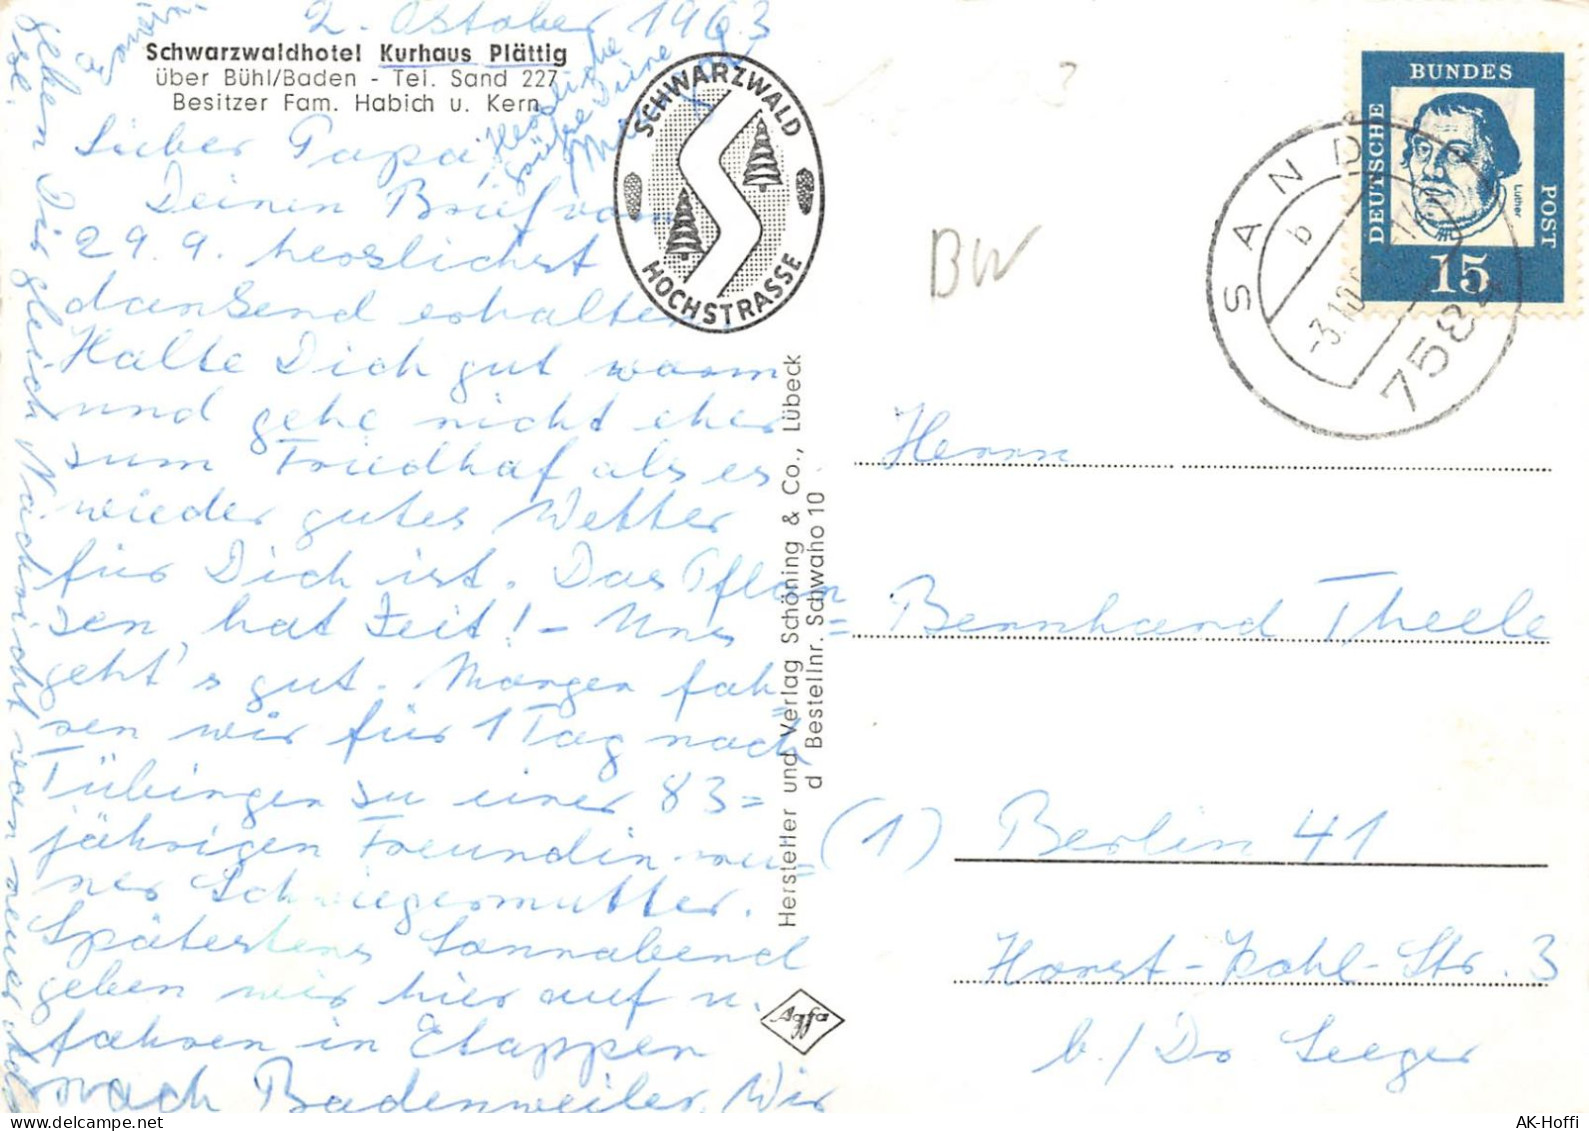 2. Oktober 1963
Schwarzwaldhotel Kurhaus Plättig
über Bühl/Baden - Tel. Sand 227
Besitzer Fam. Habich u. Kern
Lieber Papa,
Deinen Brief vom
29. 9. herzlichst
dankend erhalten.
Halte Dich gut warm
und gehe nicht eher
zum Friedhof als es
wieder gutes Wetter
für Dich ist. Das Pflan=
zen hat Zeit! - Uns
geht's gut. Morgen fah=
ren wir für 1 Tag nach
Tübingen zu einer 83=
jährigen Freundin mei=
ner Schwiegermutter.
Spätestens Sonnabend
geben wir hier auf u.
fahren in Etappen
nach Badenweiler. Wir
geben Dir gleich Nachricht von neuer Ad
esse.
Herzliche
Grüße Deine
SCHWARZWALD
HOCHSTRASSE
Hersteller und Verlag Schöning & Co., Lübeck
d Bestellnr. Schwaho 10
Agfa
BW
DEUTSCHE
BUNDES
POST
Luther
15
SAND
b
-3.10
7584
Herrn
Bernhard Theele
(1) Berlin 41
Horst-Kohl-Str. 3
b./Dr Seeger
AK-Hoffi